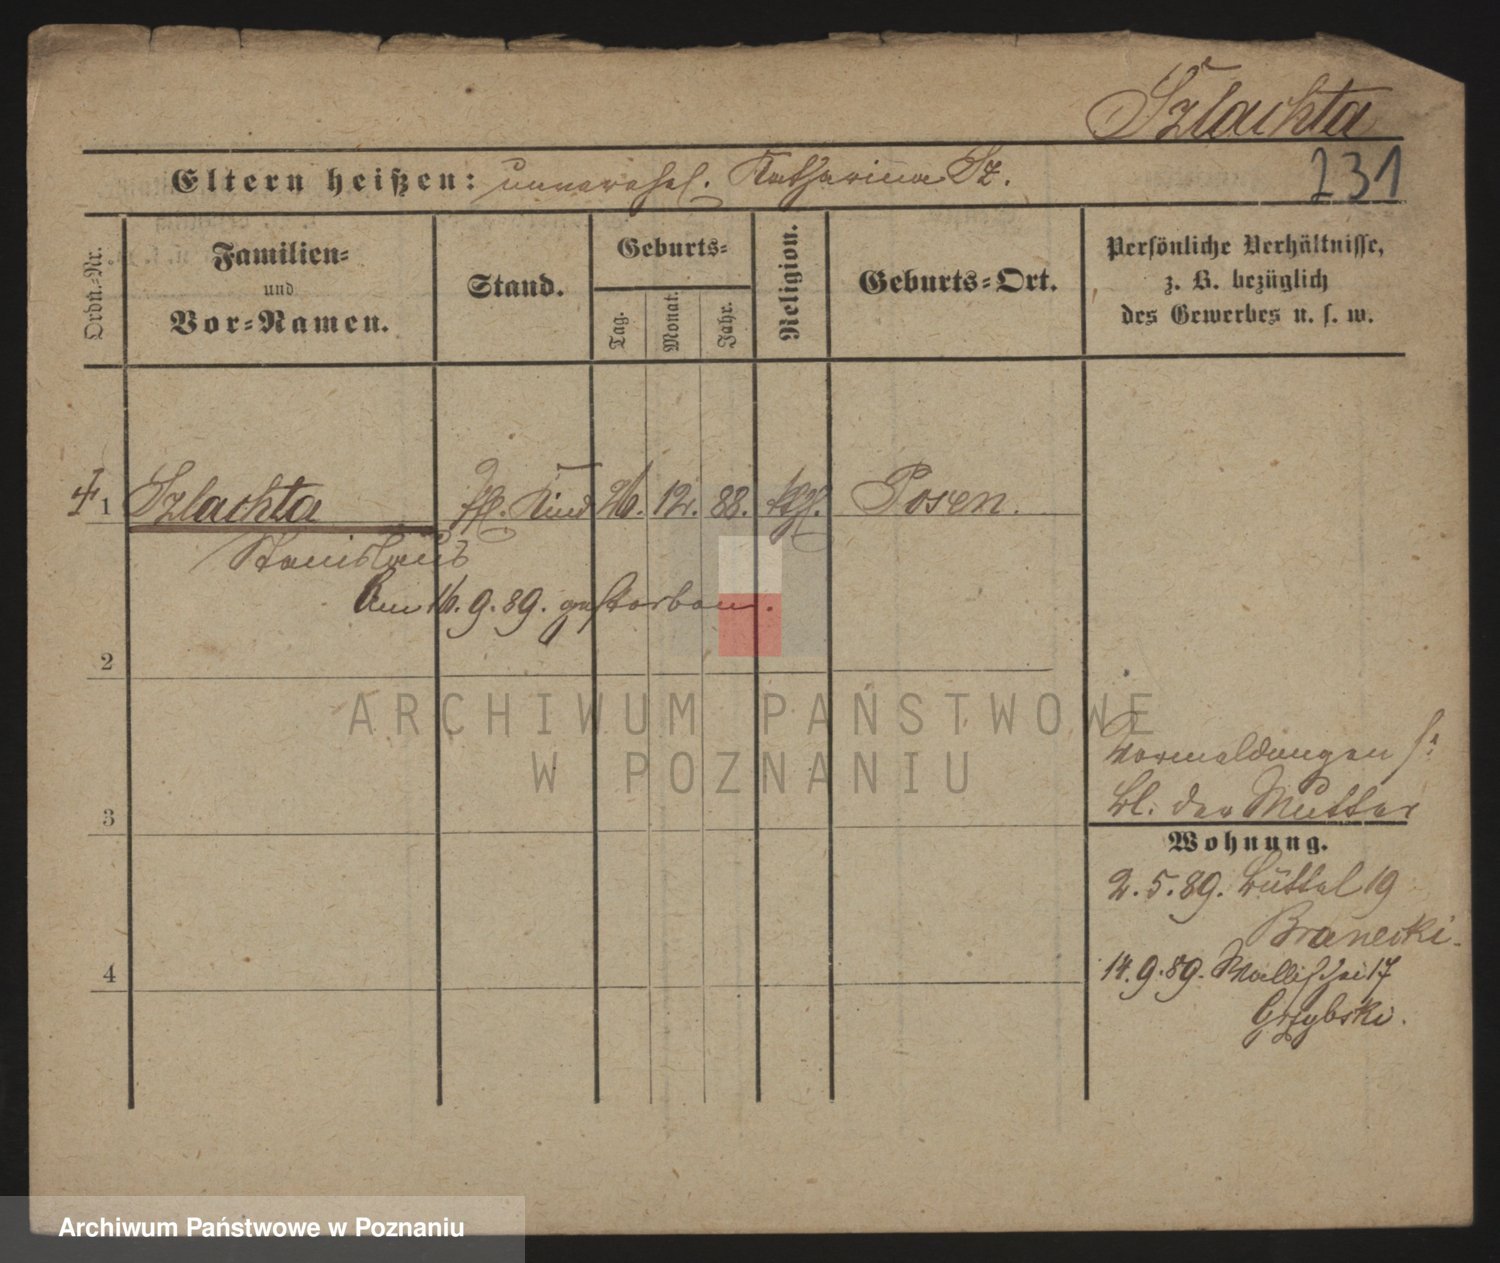 Szlachta
Eltern heißen: unverehel. Katharina Sz.
231
Ordn.-Nr.
Familien-
und
Vor-Namen.
Stand.
Geburts-
Tag.
Monat.
Jahr.
Religion.
Geburts-Ort.
Persönliche Verhältnisse,
z. B. bezüglich
des Gewerbes u. s. w.
1 Szlachta Kind 26. 12. 88. kthl. Posen.
Stanislaus
Am 16. 9. 89. gestorben.
2
ARCHIWUM PAŃSTWOWE
W POZNANIU
Vormeldungen s.
Bl. der Mutter
3
Wohnung.
2. 5. 89. Büttel 19
Pranecki.
4
14. 9. 89. Wallischei 17
Grzybski.
Archiwum Państwowe w Poznaniu